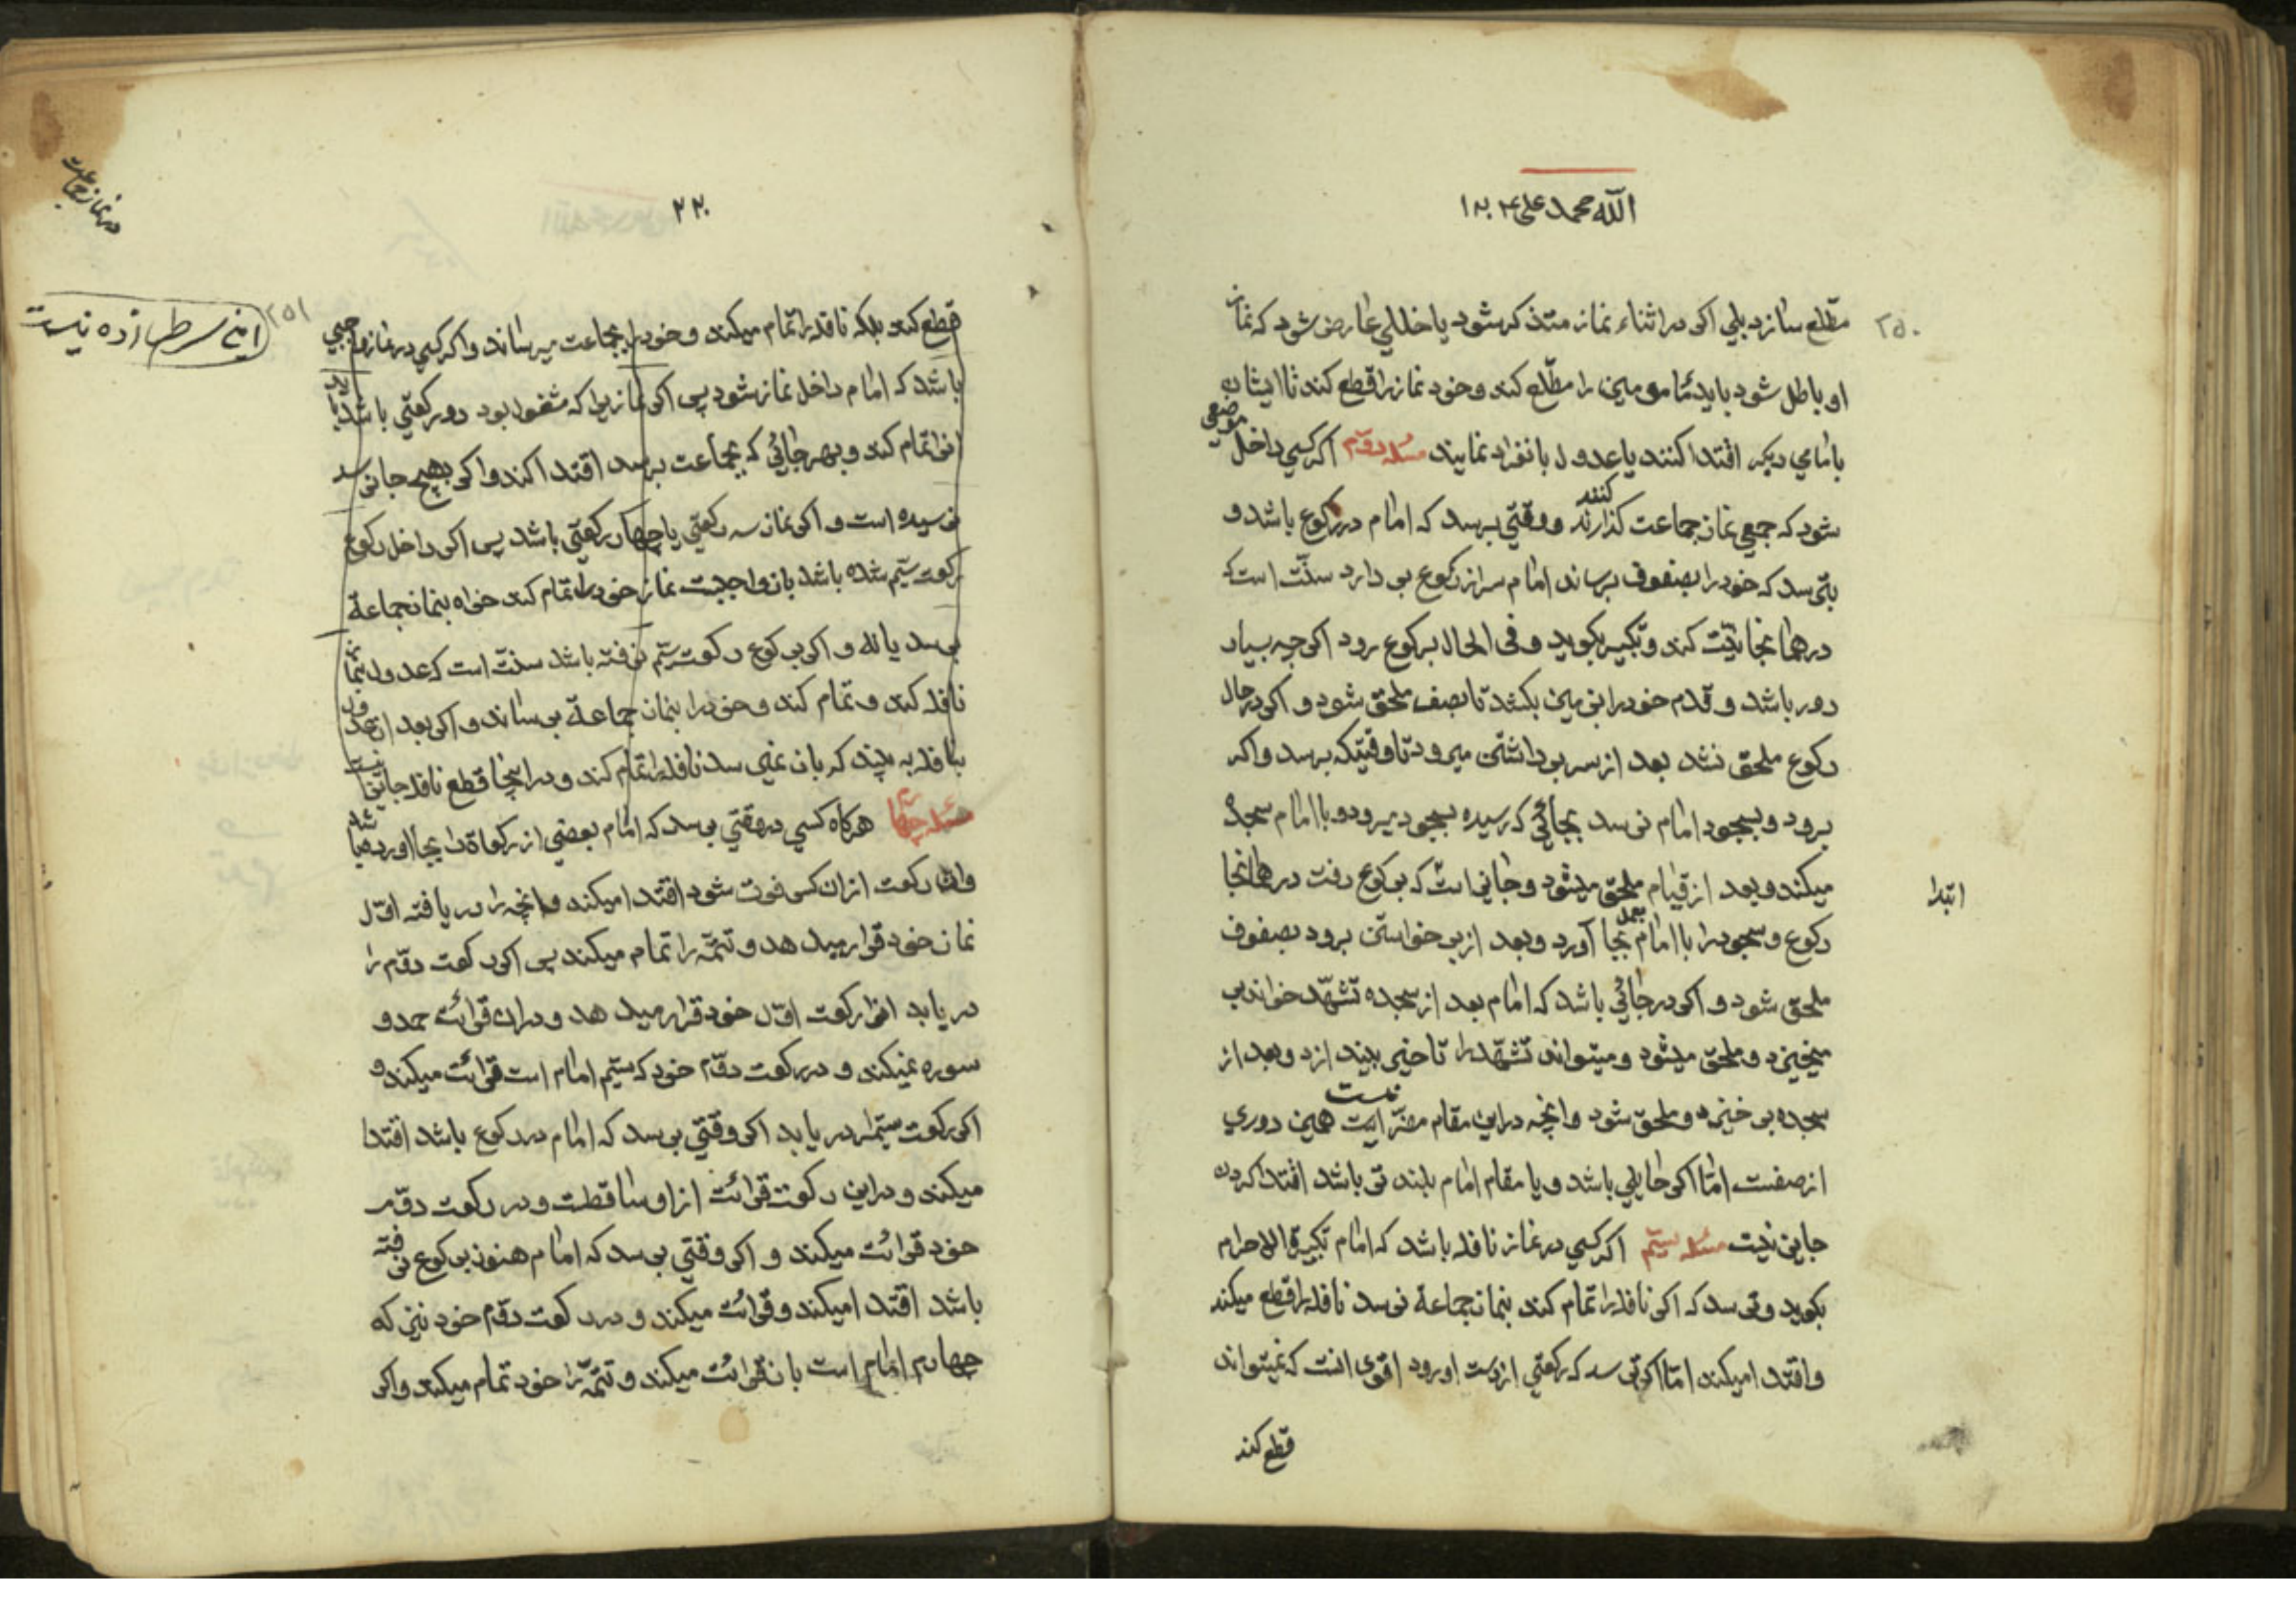 الله محمد علی
۲۵۰
مطّلع سازد بلي اكر در اثناء نماز متذكر شود يا خللي عارض شود كه نماز
او باطل شود بايد مامومين را مطّلع كند وخود نماز را قطع كند تا ايشان
بامامي ديكر اقتدا كنند يا عدول بانفراد نمايند مسئله دوّم اكر كسي داخل موضعي
شود كه جمعي نماز جماعت كذارند كنند ووقتي برسد كه امام در ركوع باشد و
بترسد كه خود را بصفوف برساند امام سر از ركوع بر دارد سنّت است كه
در همانجا نيّت كند وتكبير بكويد وفى الحال بركوع رود اكر چه بسيار
دور باشد وقدم خود را بر زمين بكشد تا بصف ملحق شود واكر در حال
ركوع ملحق نشد بعد از سر برداشتن ميرود تا وقتيكه برسد واكر
برود وبسجود امام نرسد بجائي كه رسيده بسجود ميرود وبا امام سجده
ميكند وبعد از قيام ملحق ميشود وجايز است كه بركوع رفت در همانجا
ابتدا
ركوع وسجود را با امام بعمل بجا آورد وبعد از برخواستن برود بصفوف
ملحق شود واكر در جائي باشد كه امام بعد از سجده تشهّد خواند بر
ميخيزد وملحق ميشود وميتواند تشهّد را تاخير بيندازد وبعد از
سجده بر خيزد وملحق شود وانچه در اين مقام مضرّ نيست همين دوري
از صفست امّا اكر حايلي باشد ويا مقام امام بلند تر باشد اقتدا كردن
جايز نيست مسئله سيّم اكر كسي در نماز نافله باشد كه امام تكبيرة الاحرام
بكويد وترسد كه اكر نافله را تمام كند بنماز جماعة نرسد نافله را قطع ميكند
واقتدا ميكند امّا اكر ترسد كه ركعتي از دست او رود اقوى انست كه نميتواند
قطع كند
در نماز جماعت
۲۲۰
۲۵۱
قطع كند بلكه نافله را تمام ميكند وخود را بجماعت ميرساند واكر كسي در نماز واجبي
باشد كه امام داخل نماز شود پس اكر نمازيرا كه مشغول بود دو ركعتي باشد بايد
انرا تمام كند وبهر جائي كه بجماعت برسد اقتدا كند واكر بهيچ جا نرسد
نرسيده است واكر نماز سه ركعتي يا چهار ركعتي باشد پس اكر داخل ركوع
ركعت سيّم شده باشد باز واجبست نماز خود را تمام كند خواه بنماز جماعة
برسد يا نه واكر بركوع ركعت سيّم نرفته باشد سنّت است كه عدول بنماز
نافله كند وتمام كند وخود را بنماز جماعة برساند واكر بعد از عدول
بنافله به بيند كه بان نميرسد نافله را تمام كند ودر اينجا قطع نافله جايز نيست
مسئله چهارم هركاه كسي در وقتي برسد كه امام بعضي از ركعات را بجا اورده باشد
وان ركعت از ان كس فوت شود اقتدا ميكند وانچه را دريافته اوّل
نماز خود قرار ميدهد وتتمّه را تمام ميكند پس اكر ركعت دوّم را
دريابد انرا ركعت اوّل خود قرار ميدهد ودران قرائت حمد و
سوره نميكند ودر ركعت دوّم خود كه سيّم امام است قرائت ميكند و
اكر ركعت سيّم را دريابد اكر وقتي برسد كه امام در ركوع باشد اقتدا
ميكند ودر اين ركعت قرائت از او ساقطست ودر ركعت دوّم
خود قرائت ميكند واكر وقتي برسد كه امام هنوز بركوع نرفته
باشد اقتدا ميكند وقرائت ميكند ودر ركعت دوّم خود نيز كه
چهارم امام است باز قرائت ميكند وتتمّه را خود تمام ميكند واكر